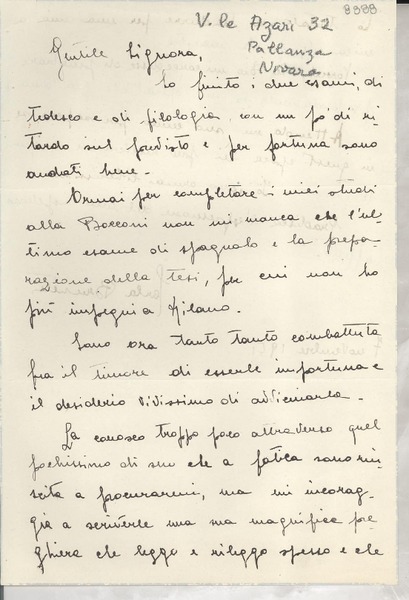 8888
V.le Azari 32
Pallanza
Novara
Gentile Signora,
ho finito i due esami, di
tedesco e di filologia con un po' di ri-
tardo sul previsto e per fortuna sono
andati bene.
Ormai per completare i miei studi
alla Bocconi non mi manca che l'ul-
timo esame di spagnolo e la prepa-
razione della tesi, per cui non ho
più impegni a Milano.
Sono ora tanto tanto combattuta
fra il timore di esserle importuna e
il desiderio vivissimo di avvicinarla.
La conosco troppo poco attraverso quel
pochissimo di suo che a fatica sono riu-
scita a procurarmi, ma mi incorag-
gia a scriverle una sua magnifica pre-
ghiera che leggo e rileggo spesso e che